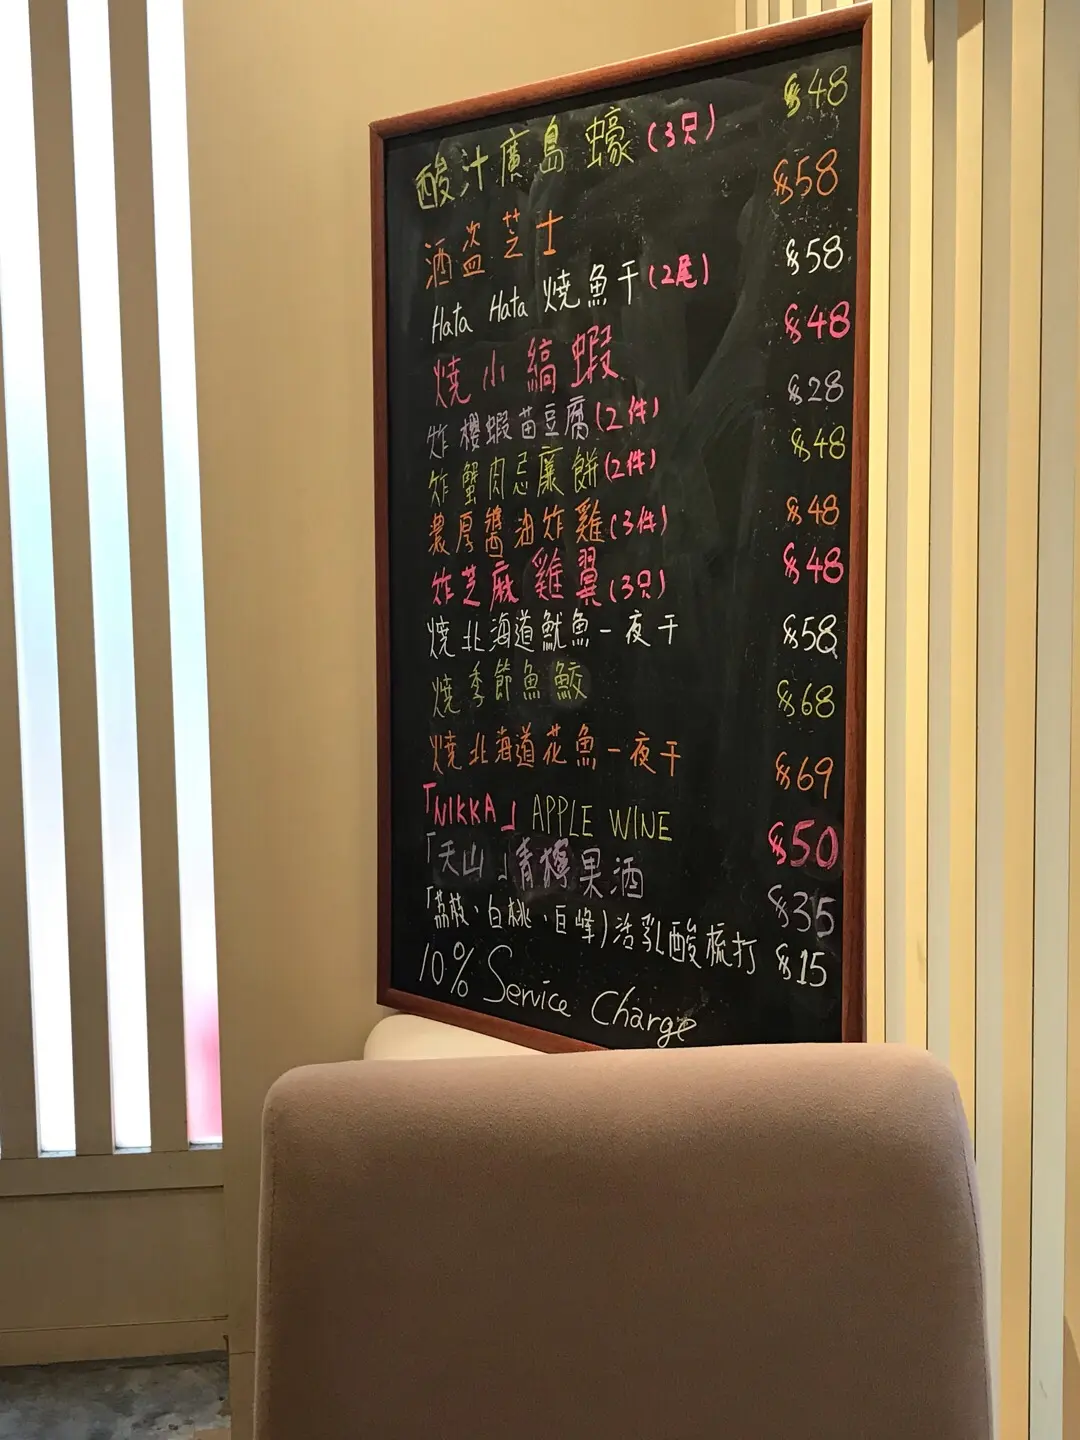 酸汁廣島蠔(3只) $48
酒盗芝士 $58
Hata Hata 燒魚干(2尾) $58
燒小縞蝦 $48
炸櫻蝦苗豆腐(2件) $28
炸蟹肉忌廉餅(2件) $48
濃厚醬油炸雞(3件) $48
炸芝麻雞翼(3只) $48
燒北海道魷魚一夜干 $58
燒季節魚鮫 $68
燒北海道花魚一夜干 $69
「NIKKA」 APPLE WINE $50
「天山」青檸果酒 $35
「荔枝、白桃、巨峰)活乳酸梳打 $15
10% Service Charge